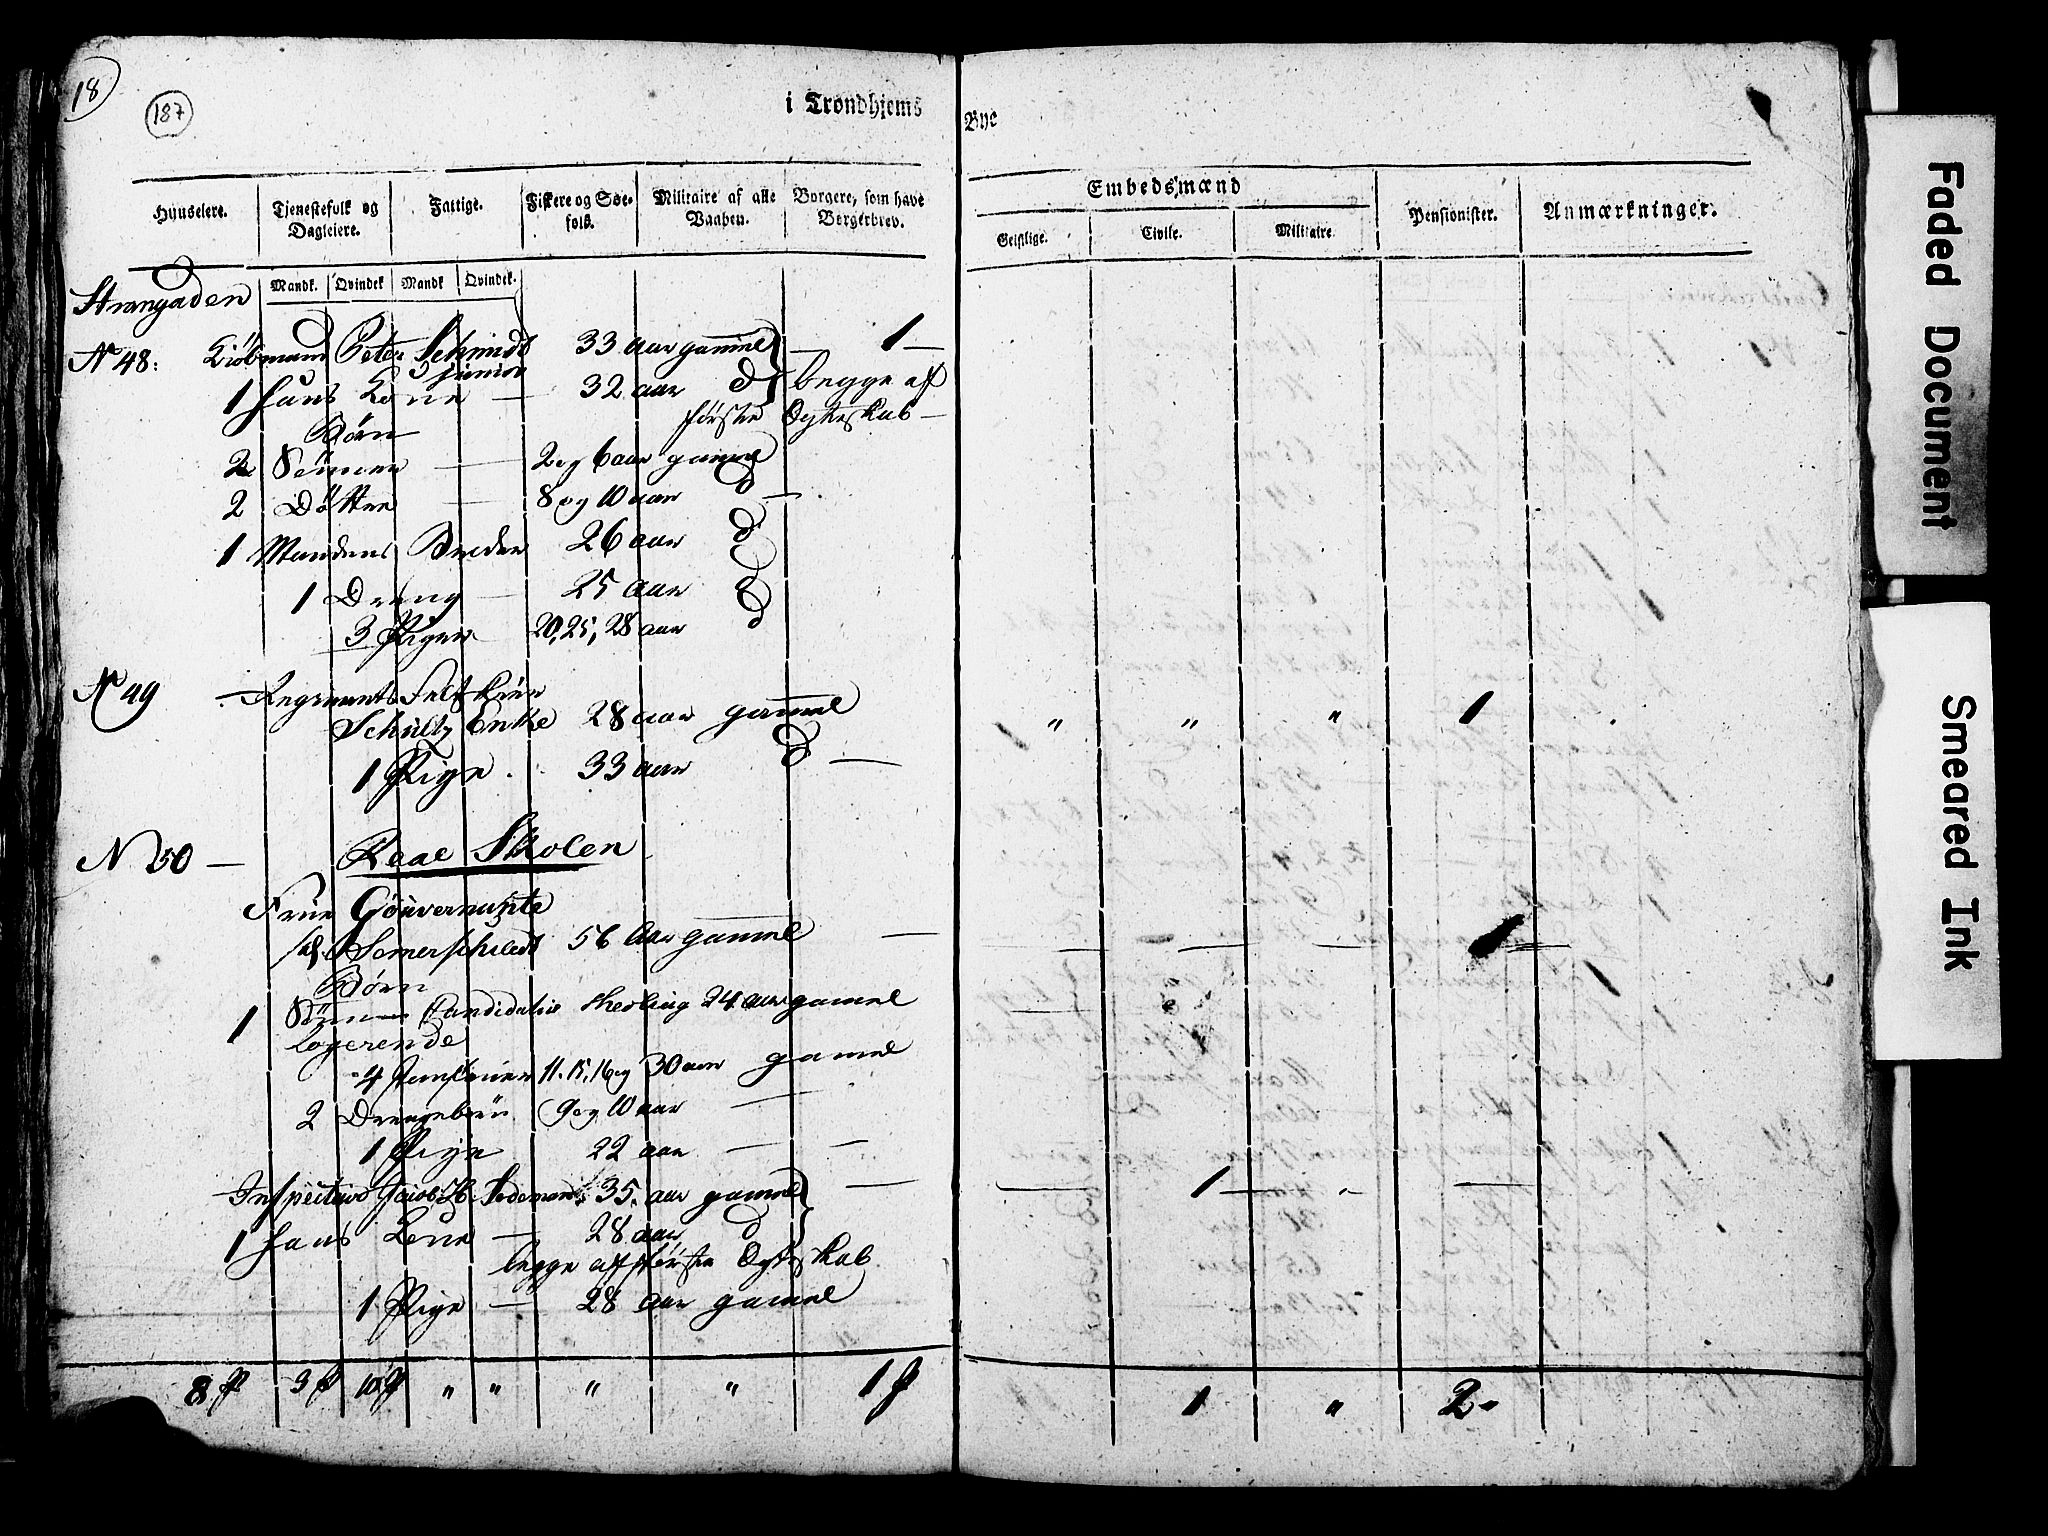 18
187
i Trondhjems Bye
Huuseiere. Tjenestefolk og Dagleiere. Fattige. Fiskere og Søefolk. Militaire af alle Vaaben. Borgere, som have Borgerbrev. Embedsmænd Pensionister. Anmærkninger.
Geistlige. Civile. Militaire.
Mandk. Qvindek Mandk Qvindek.
Strangaden
N 48: Kiøbmand Peter Schmidt 33 aar gammel 1
junior
1 hans Kone 32 aar d begge af
Børn første Ægteskab
2 Sønner 2 og 6 aar gamel
2 Døttre 8 og 10 aar d
1 Mandens Broder 26 aar d
1 Dreng 25 aar d
3 Piger 20, 25, 28 aar d
N 49 Regiments Feltskier
Schultz Enke 28 aar gammel " " " 1
1 Pige 33 aar d
N 50 Real Skolen
Frue Gouvernante
sal. Somerschield 56 Aar gammel 1
Børn
1 Candidatus 24 aar gamel
Logerende
4 11. 15, 16 og 30 aar gamel
2 Drengebørn 9 og 10 aar
1 Pige 22 aar
Inspecteur Jacob 35. aar gammel 1 "
1 hans Kone 28 aar d
begge af første Ægteskab
1 Pige 28 aar gamel
8 3 10 " " " " 1 1 " 2
Faded Document
Smeared Ink